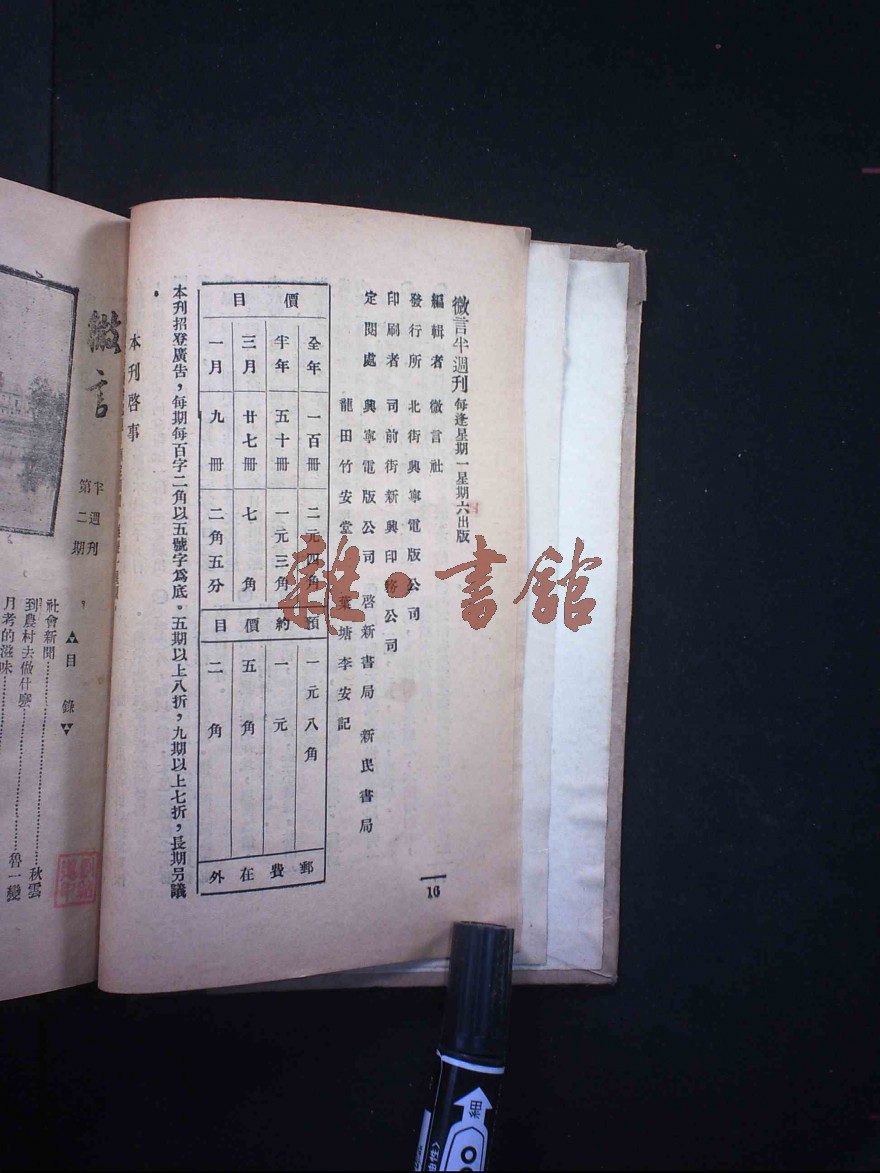 微言半週刊 每逢星期一星期六出版
編輯者 微言社
發行所 北街興寧電版公司
印刷者 司前街新興印務公司
定閱處 興寧電版公司 啓新書局 新民書局
龍田竹安堂 葉塘李安記
價目
全年 一百冊 二元四角
半年 五十冊 一元三角
三月 廿七冊 七角
一月 九冊 二角五分
預約價目
一元八角
一元
五角
二角
郵費在外
本刊招登廣告，每期每百字二角以五號字爲底。五期以上八折，九期以上七折，長期另議
16
本刊啓事
微言
半週刊
第二期
目錄
社會新聞 秋雲
到農村去做什麽 魯一變
月考的滋味
雜·書館